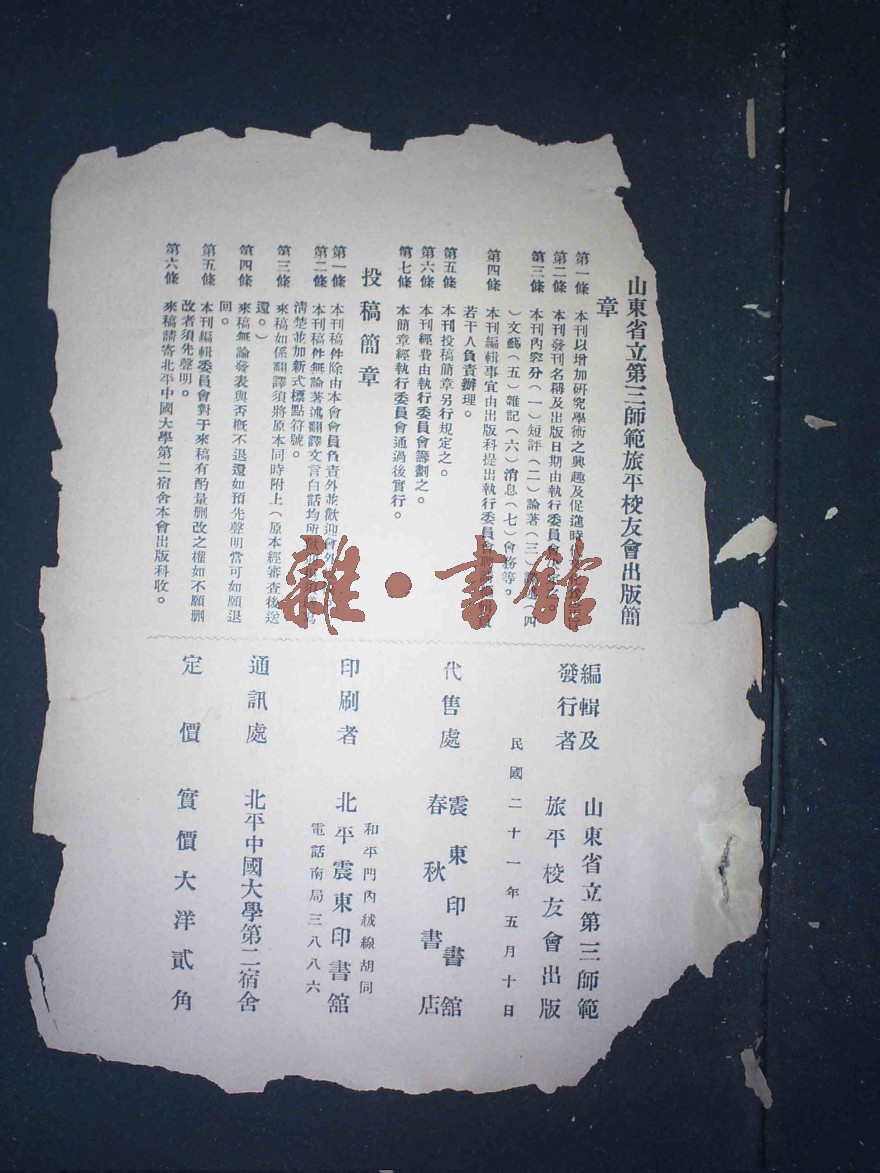 山東省立第三師範旅平校友會出版簡
章
第一條 本刊以增加研究學術之興趣及促進時代
第二條 本刊發刊名稱及出版日期由執行委員會
第三條 本刊內容分(一)短評(二)論著(三)(四
)文藝(五)雜記(六)消息(七)會務等。
第四條 本刊編輯事宜由出版科提出執行委員會
若干人負責辦理。
第五條 本刊投稿簡章另行規定之。
第六條 本刊經費由執行委員會籌劃之。
第七條 本簡章經執行委員會通過後實行。
投稿簡章
第一條 本刊稿件除由本會會員負責外並歡迎會外
第二條 本刊稿件無論著述翻譯文言白話均所
清楚並加新式標點符號。
第三條 來稿如係翻譯須將原本同時附上(原本經審查後送
還。)
第四條 來稿無論發表與否概不退還如預先聲明當可如願退
回。
第五條 本刊編輯委員會對于來稿有酌量刪改之權如不願刪
改者須先聲明。
第六條 來稿請寄北平中國大學第二宿舍本會出版科收。
編輯及 山東省立第三師範
發行者 旅平校友會出版
民國二十一年五月十日
代售處 震東印書館
春秋書店
和平門內絨線胡同
印刷者 北平震東印書館
電話南局三八八六
通訊處 北平中國大學第二宿舍
定價 實價大洋貳角
雜·書館